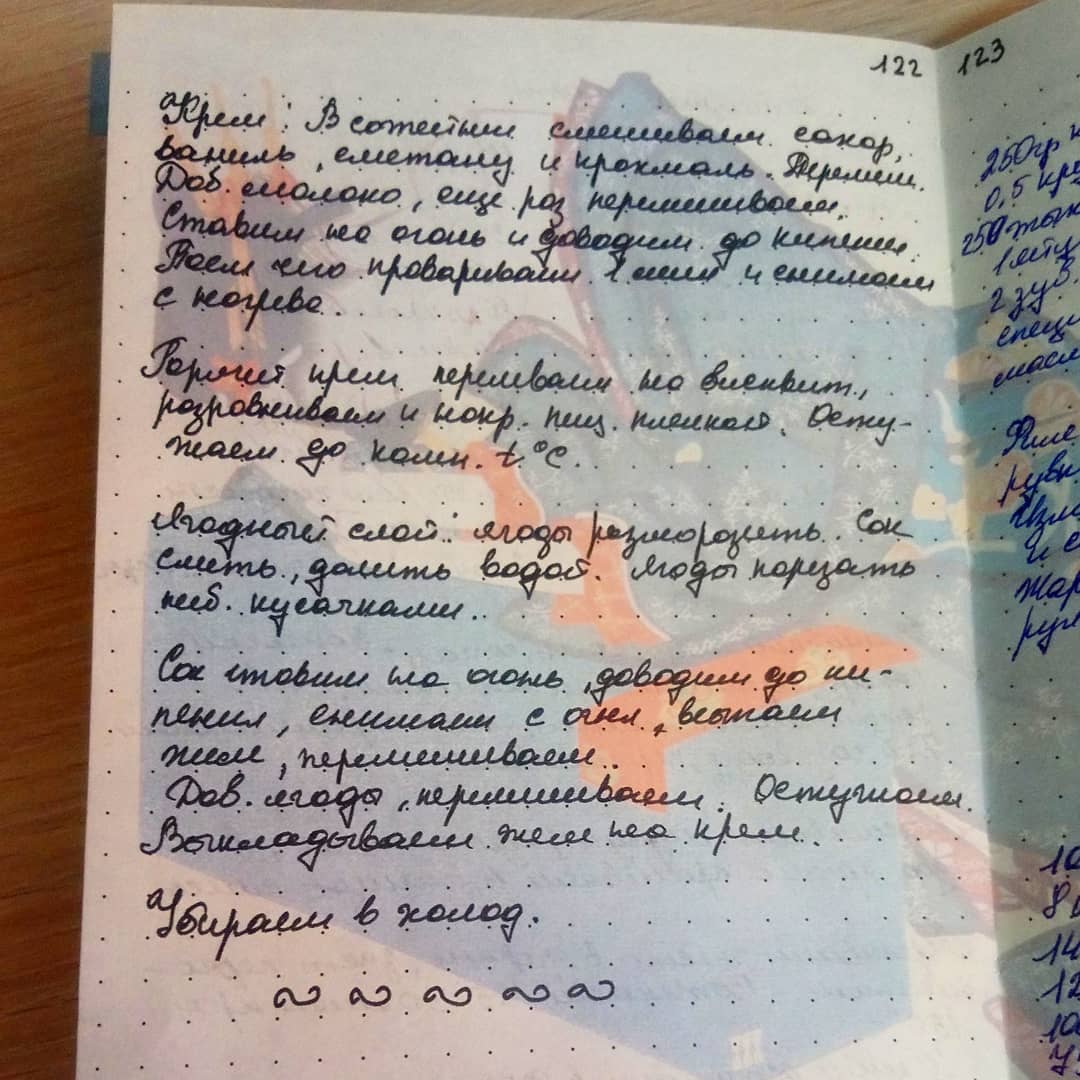 122
Крем: В сотейнике смешиваем сахар,
ваниль, сметану и крахмал. Перемеш.
Доб. молоко, еще раз перемешиваем.
Ставим на огонь и доводим до кипения.
После чего провариваем 1 мин и снимаем
с нагрева.
Горячий крем переливаем на бисквит,
разравниваем и накр. пищ. пленкой. Осту-
жаем до комн. t°C.
Ягодный слой: ягоды разморозить. Сок
слить, долить водой. Ягоды порезать
неб. кусочками.
Сок ставим на огонь, доводим до ки-
пения, снимаем с огня, всыпаем
желе, перемешиваем.
Доб. ягоды, перемешиваем. Остужаем.
Выкладываем желе на крем.
Убираем в холод.
123
250гр
0,5
250
1 яйц
2 зуб.
специ
масл
Филе
и с
жар
10
8
14
12
10